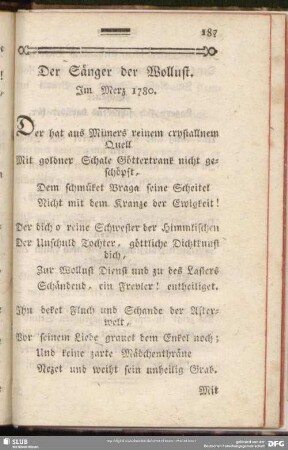 187
Der Sänger der Wollust.
Im Merz 1780.
Der hat aus Mimers reinem crystallnem
Quell
Mit goldner Schale Göttertrank nicht ge-
schöpft,
Dem schmüket Braga seine Scheitel
Nicht mit dem Kranze der Ewigkeit!
Der dich o reine Schwester der Himmlischen
Der Unschuld Tochter, göttliche Dichtkunst
dich,
Zur Wollust Dienst und zu des Lasters
Schändend, ein Frevler! entheiliget.
Ihn deket Fluch und Schande der After-
welt,
Vor seinem Liede grauet dem Enkel noch;
Und keine zarte Mädchenthräne
Nezet und weiht sein unheilig Grab.
Mit
SLUB
DFG